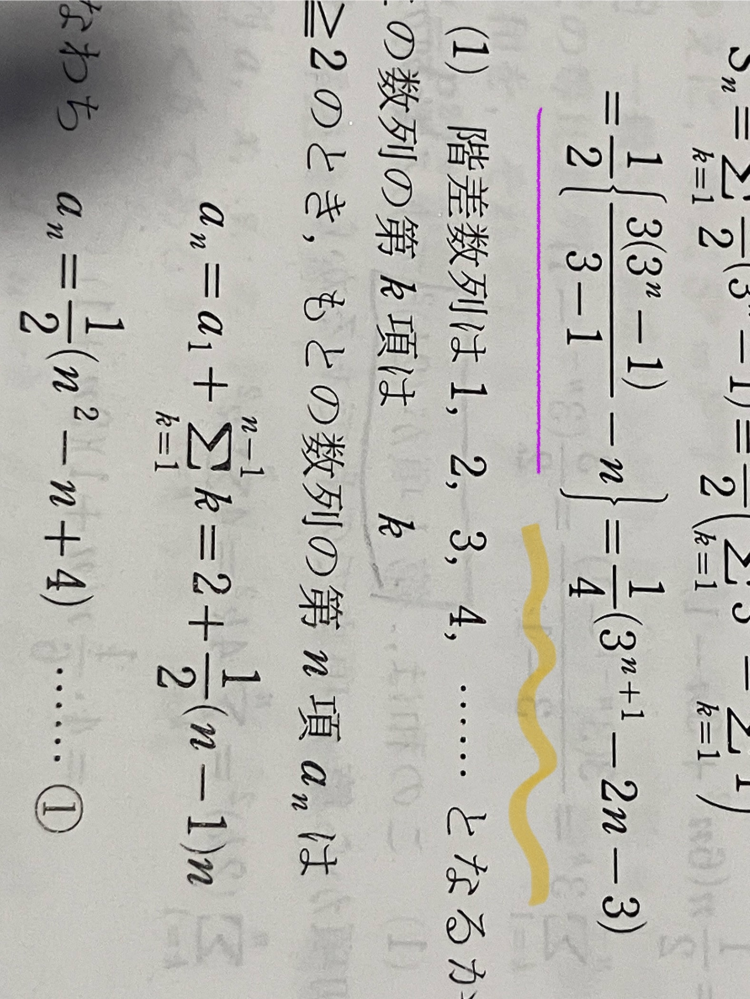 Sₙ = Σ_{k=1} 1/2(3ⁿ − 1) = 1/2(Σ_{k=1} 3 − Σ_{k=1} 1)
= 1/2{3(3ⁿ − 1)/(3 − 1) − n} = 1/4(3ⁿ⁺¹ − 2n − 3)
(1) 階差数列は 1, 2, 3, 4, …… となるか
の数列の第 k 項は k
≧2 のとき, もとの数列の第 n 項 aₙ は
aₙ = a₁ + Σ_{k=1}^{n−1} k = 2 + 1/2(n − 1)n
なわち aₙ = 1/2(n² − n + 4) …… ①